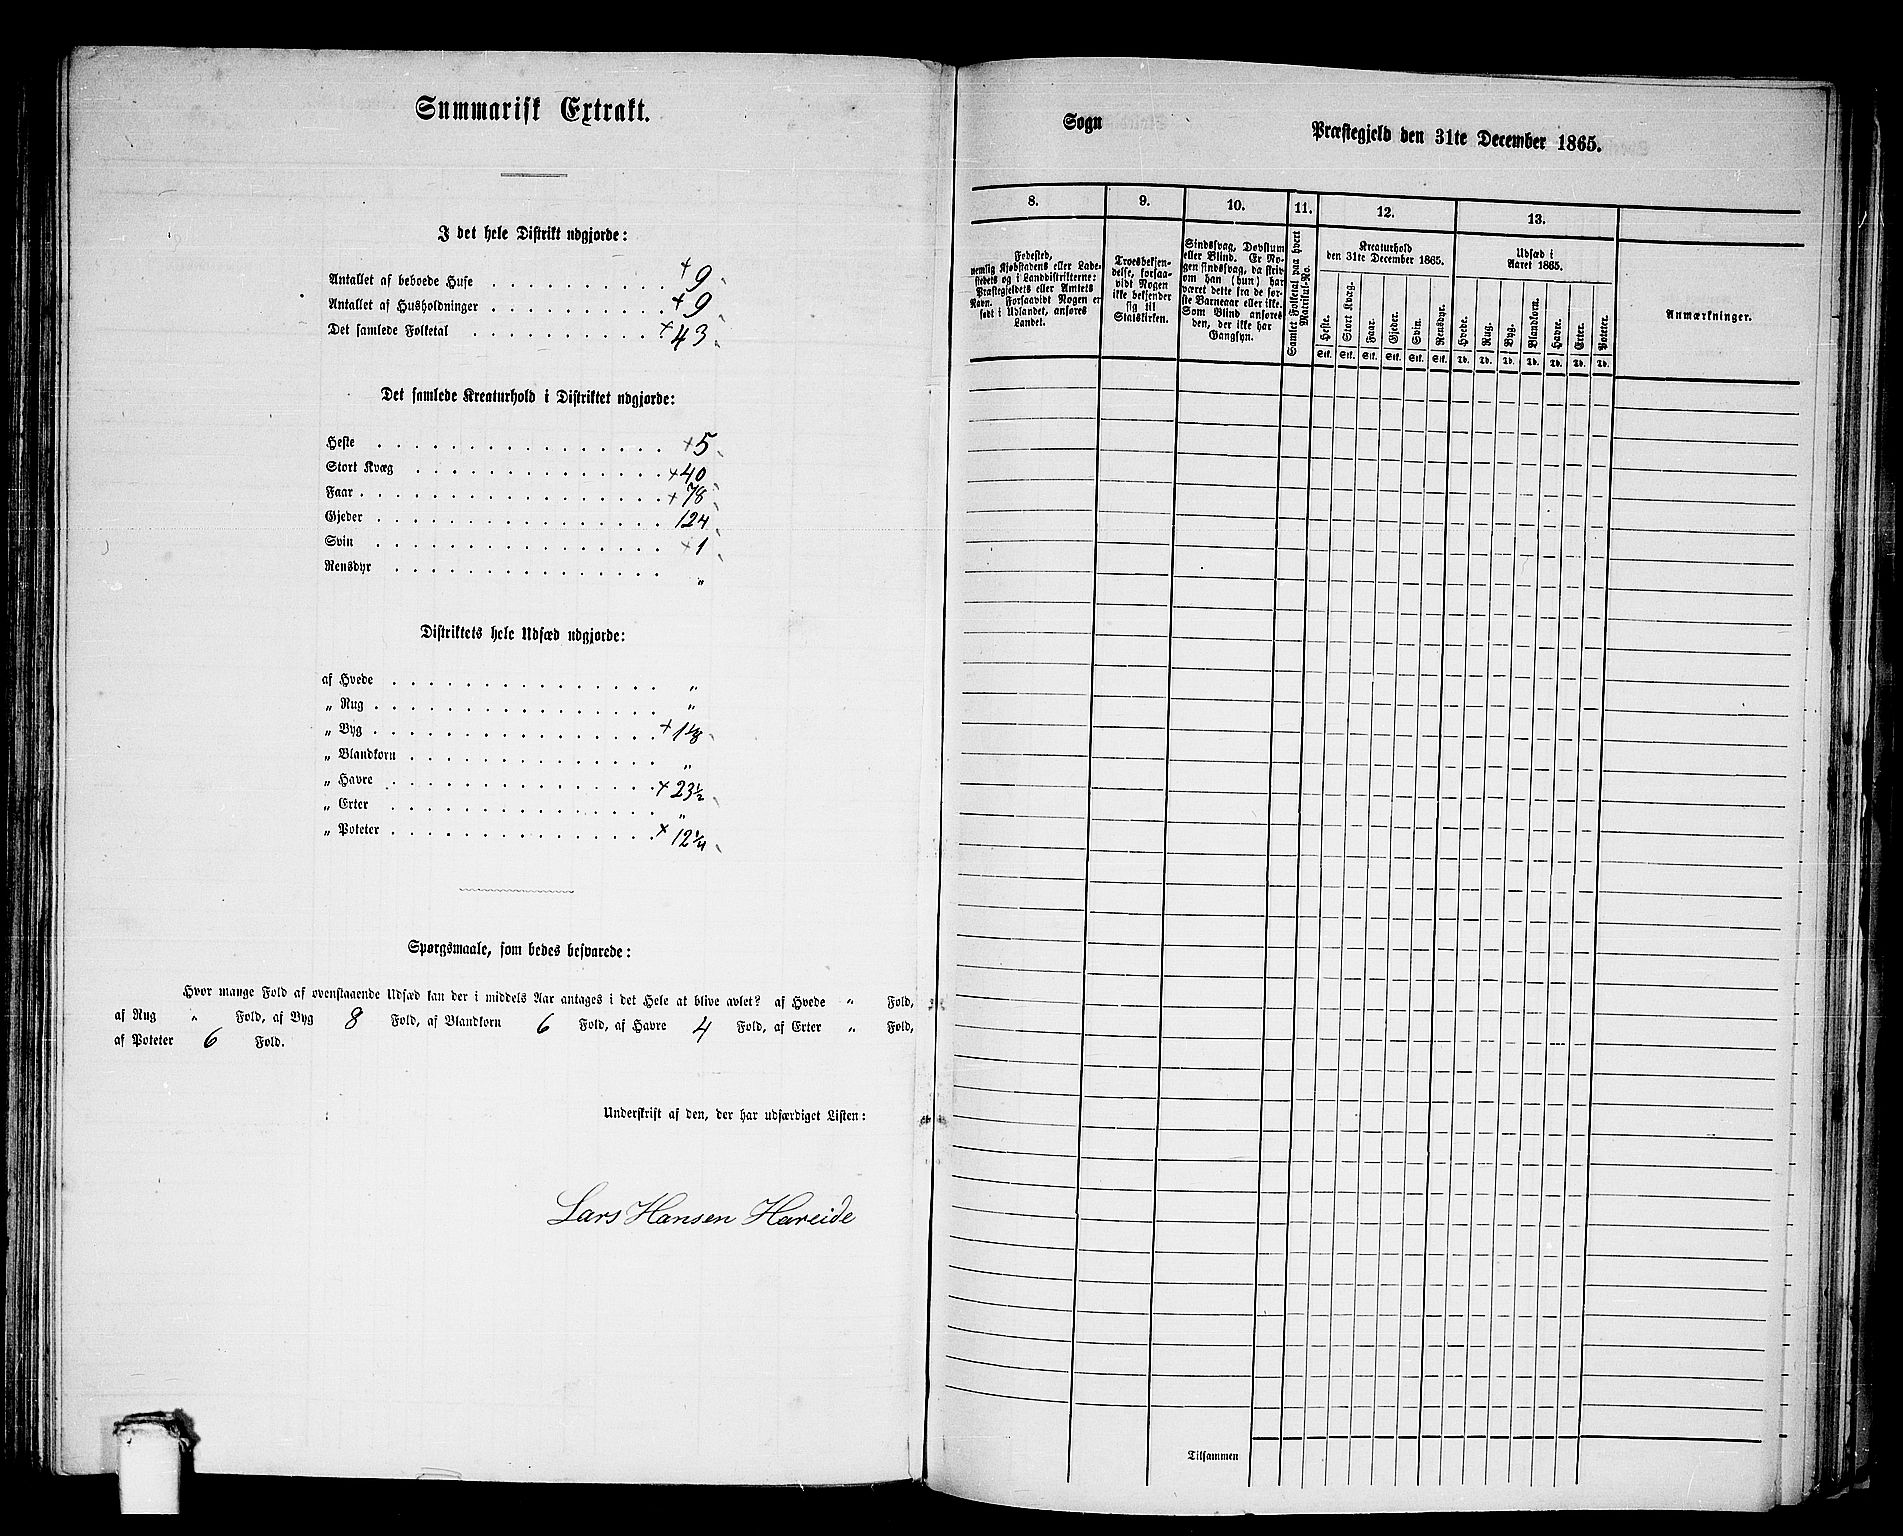 Summarisk Extrakt.
I det hele Distrikt udgjorde:
Antallet af beboede Huse . . . . . . . . . . + 9
Antallet af Husholdninger . . . . . . . . . . + 9
Det samlede Folketal . . . . . . . . . . + 43
Det samlede Kreaturhold i Distriktet udgjorde:
Heste . . . . . . . . . . + 5
Stort Kvæg . . . . . . . . . . + 40
Faar . . . . . . . . . . + 78
Gjeder . . . . . . . . . . 124
Svin . . . . . . . . . . + 1
Rensdyr . . . . . . . . . . „
Distriktets hele Udsæd udgjorde:
af Hvede . . . . . . . . . . „
„ Rug . . . . . . . . . . „
„ Byg . . . . . . . . . . + 1 1/8
„ Blandkorn . . . . . . . . . . „
„ Havre . . . . . . . . . . + 23 1/2
„ Erter . . . . . . . . . . „
„ Poteter . . . . . . . . . . + 12 1/4
Spørgsmaale, som bedes besvarede:
Hvor mange Fold af ovenstaaende Udsæd kan der i middels Aar antages i det Hele at blive avlet? af Hvede „ Fold,
af Rug „ Fold, af Byg 8 Fold, af Blandkorn 6 Fold, af Havre 4 Fold, af Erter „ Fold,
af Poteter 6 Fold.
Underskrift af den, der har udfærdiget Listen:
Lars Hansen Hareide
Sogn
Præstegjeld den 31te December 1865.
8.
9.
10.
11.
12.
13.
Fødested,
nemlig Kjøbstadens eller Lade-
stedets og i Landdistrikterne:
Præstegjeldets eller Amtets
Navn. Forsaavidt Nogen er
født i Udlandet, anføres
Landet.
Troesbekjen-
delse, forsaa-
vidt Nogen
ikke bekjender
sig til
Statskirken.
Sindssvag, Døvstum
eller Blind. Er No-
gen sindssvag, da skriv
om han (hun) har
været dette fra de før-
ste Barneaar eller ikke.
Som Blind anføres
den, der ikke har
Gangsyn.
Samlet Folketal paa hvert
Matrikul-No.
Kreaturhold
den 31te December 1865.
Heste.
Stort Kvæg.
Faar.
Gjeder.
Svin.
Rensdyr.
Stk. Stk. Stk. Stk. Stk. Stk.
Udsæd i
Aaret 1865.
Hvede.
Rug.
Byg.
Blandkorn.
Havre.
Erter.
Poteter.
Td. Td. Td. Td. Td. Td. Td.
Anmærkninger.
Tilsammen